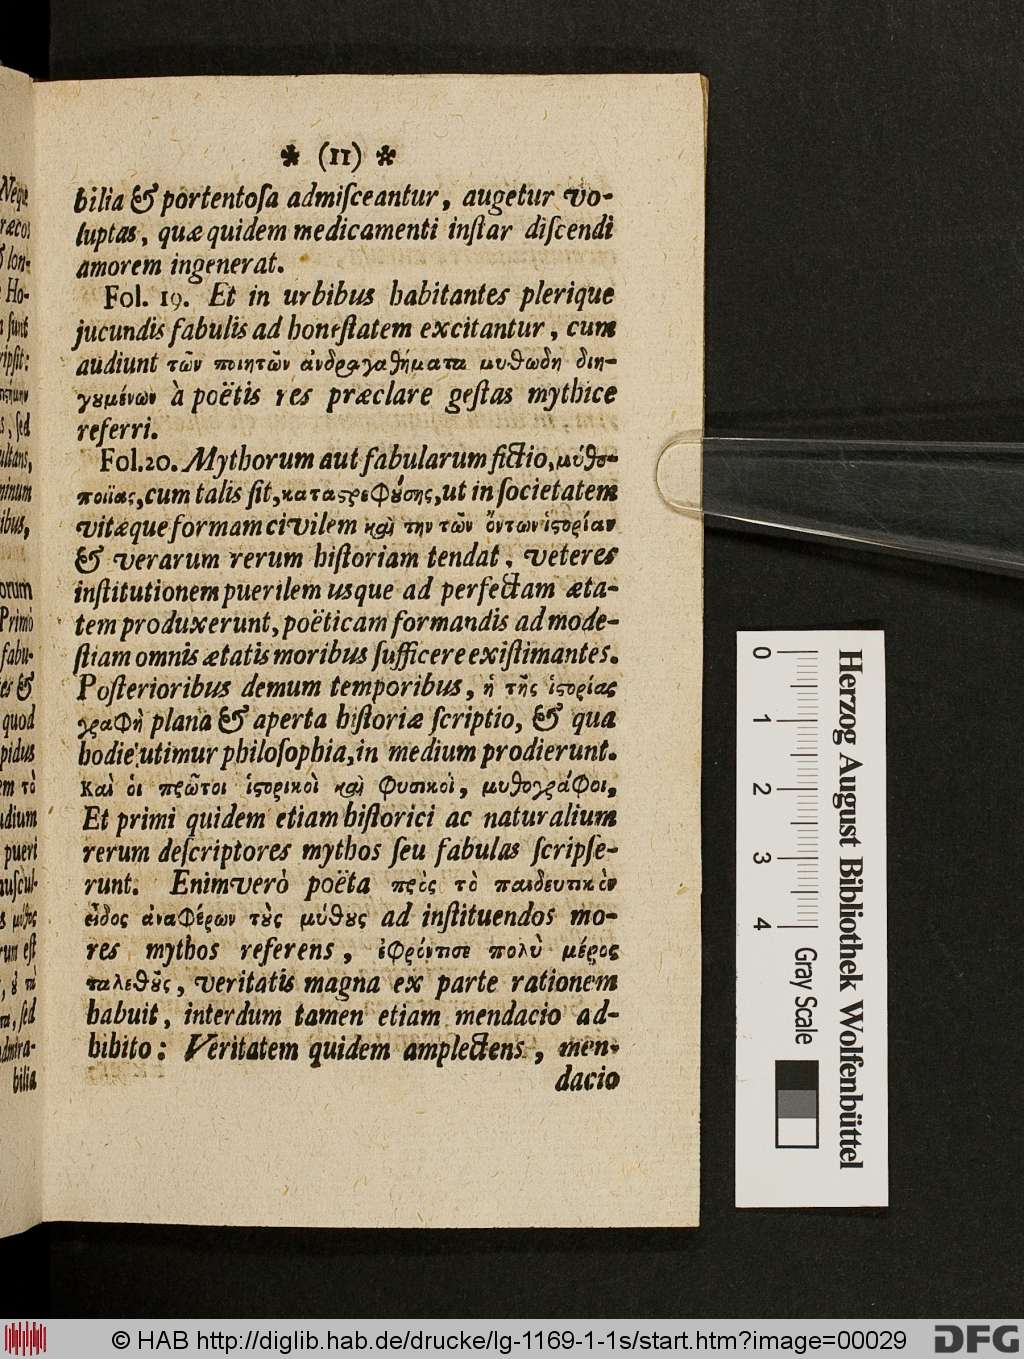 * (11) *
bilia & portentoſa admiſceantur, augetur vo-
luptas, quæ quidem medicamenti inſtar diſcendi
amorem ingenerat.
Fol. 19. Et in urbibus habitantes plerique
jucundis fabulis ad honeſtatem excitantur, cum
audiunt τῶν ποιητῶν ἀνδραγαθήματα μυθωδη διη-
γȣμένων à poëtis res præclare geſtas mythice
referri.
Fol. 20. Mythorum aut fabularum fictio, μύθο-
ποιίας, cum talis ſit, καταϛρεφȣ́σης, ut in ſocietatem
vitæque formam civilem καὶ την τῶν ὄντων ἱϛορίαν
& verarum rerum hiſtoriam tendat, veteres
inſtitutionem puerilem usque ad perfectam æta-
tem produxerunt, poëticam formandis ad mode-
ſtiam omnis ætatis moribus ſufficere exiſtimantes.
Poſterioribus demum temporibus, ἡ τῆς ἱϛορίας
γραφὴ plana & aperta hiſtoriæ ſcriptio, & qua
hodie utimur philoſophia, in medium prodierunt.
Καὶ οἱ πρῶτοι ἱϛορικοὶ καὶ φυσικοὶ, μυθογράφοι,
Et primi quidem etiam hiſtorici ac naturalium
rerum deſcriptores mythos ſeu fabulas ſcripſe-
runt. Enimverò poëta πρὸς τὸ παιδευτικὸν
εἶδος ἀναφέρων τȣ̀ς μύθȣς ad inſtituendos mo-
res mythos referens, ἐφρόντισε πολὺ μέρος
ταλεθȣ͂ς, veritatis magna ex parte rationem
habuit, interdum tamen etiam mendacio ad-
hibito: Veritatem quidem amplectens, men-
dacio
Herzog August Bibliothek Wolfenbüttel
0 1 2 3 4
Gray Scale
© HAB http://diglib.hab.de/drucke/lg-1169-1-1s/start.htm?image=00029
DFG